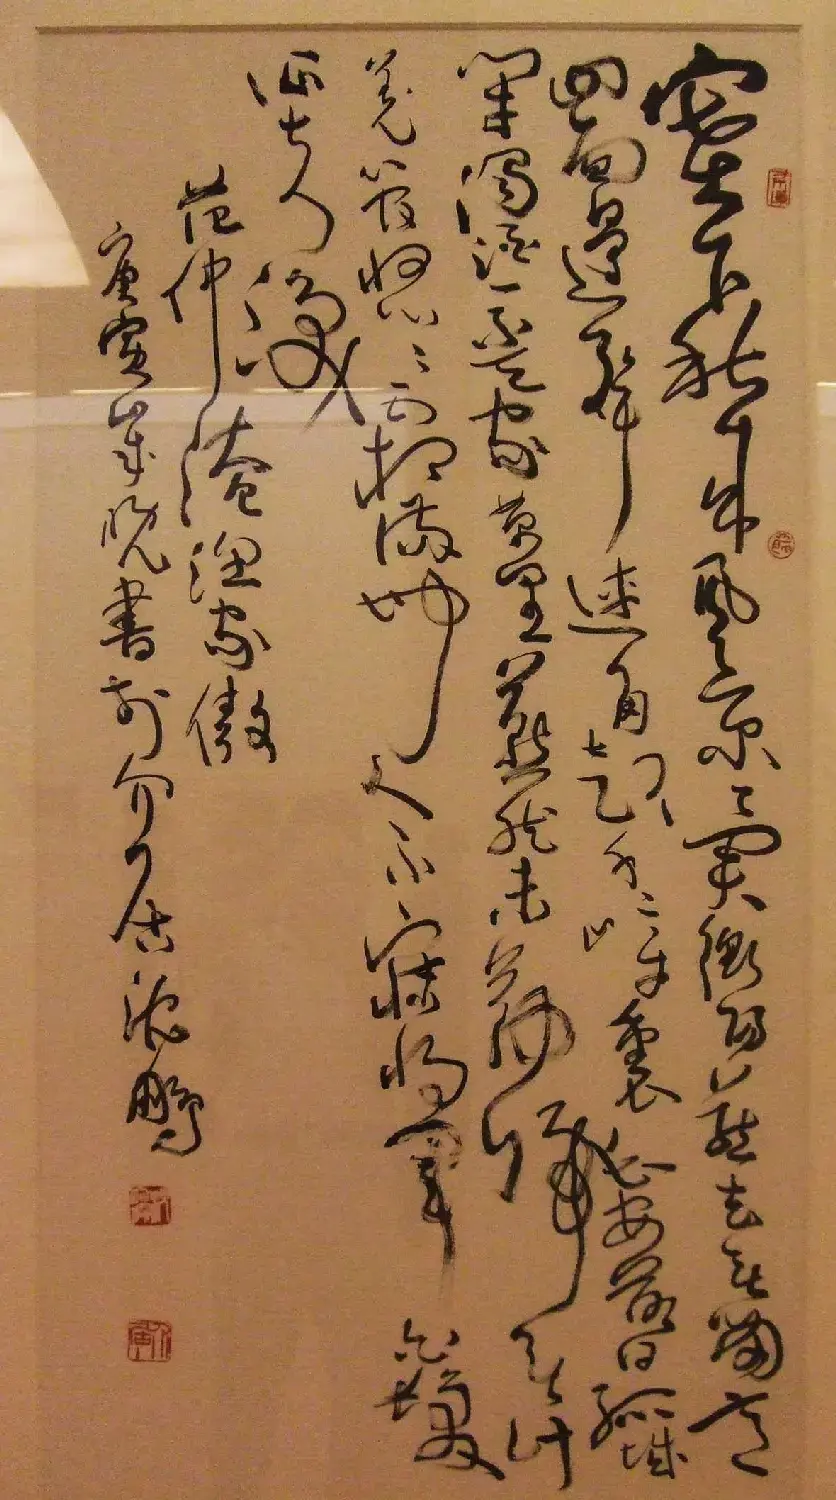 塞下秋来風景異衡陽雁去無留意
四面邊聲連角起千嶂裏長煙落日孤城
閉濁酒一杯家萬里燕然未勒歸無計
羌管悠〻霜滿地人不寐將軍白髮
征夫淚
范仲淹漁家傲
庚寅歲晚書於介居沈鵬